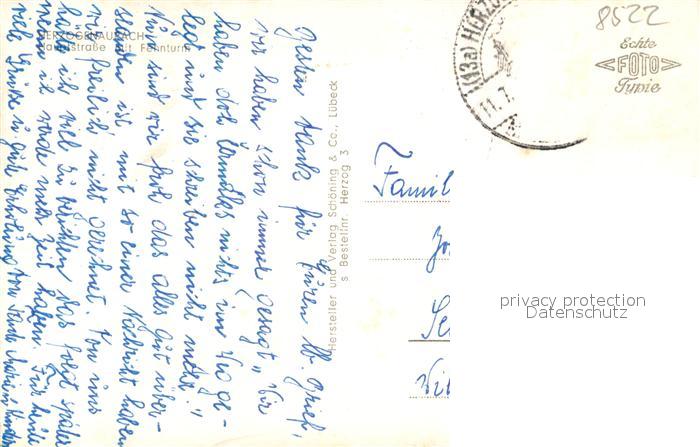 HERZOGENAURACH
Hauptstraße mit Fehnturm
Besten Dank für Euren lb. Brief,
wir haben schon immer gesagt, "Wir
haben doch Ge nichts im Weg ge-
legt und sie schreiben nicht mehr."
Nun sind wir froh das alles gut über-
standen ist, mit so einer Nachricht haben
wir freilich nicht gerechnet. Von uns
hätte ich viel zu berichten das folgt später
wenn ich werde mehr Zeit haben. Für heute
viele Grüße u. gute Erholung von
Hersteller und Verlag Schöning & Co., Lübeck
s Bestellnr. Herzog 3
(13a) HERZO
11.7.
8522
Echte
FOTO
Typie
Famil
privacy protection
Datenschutz